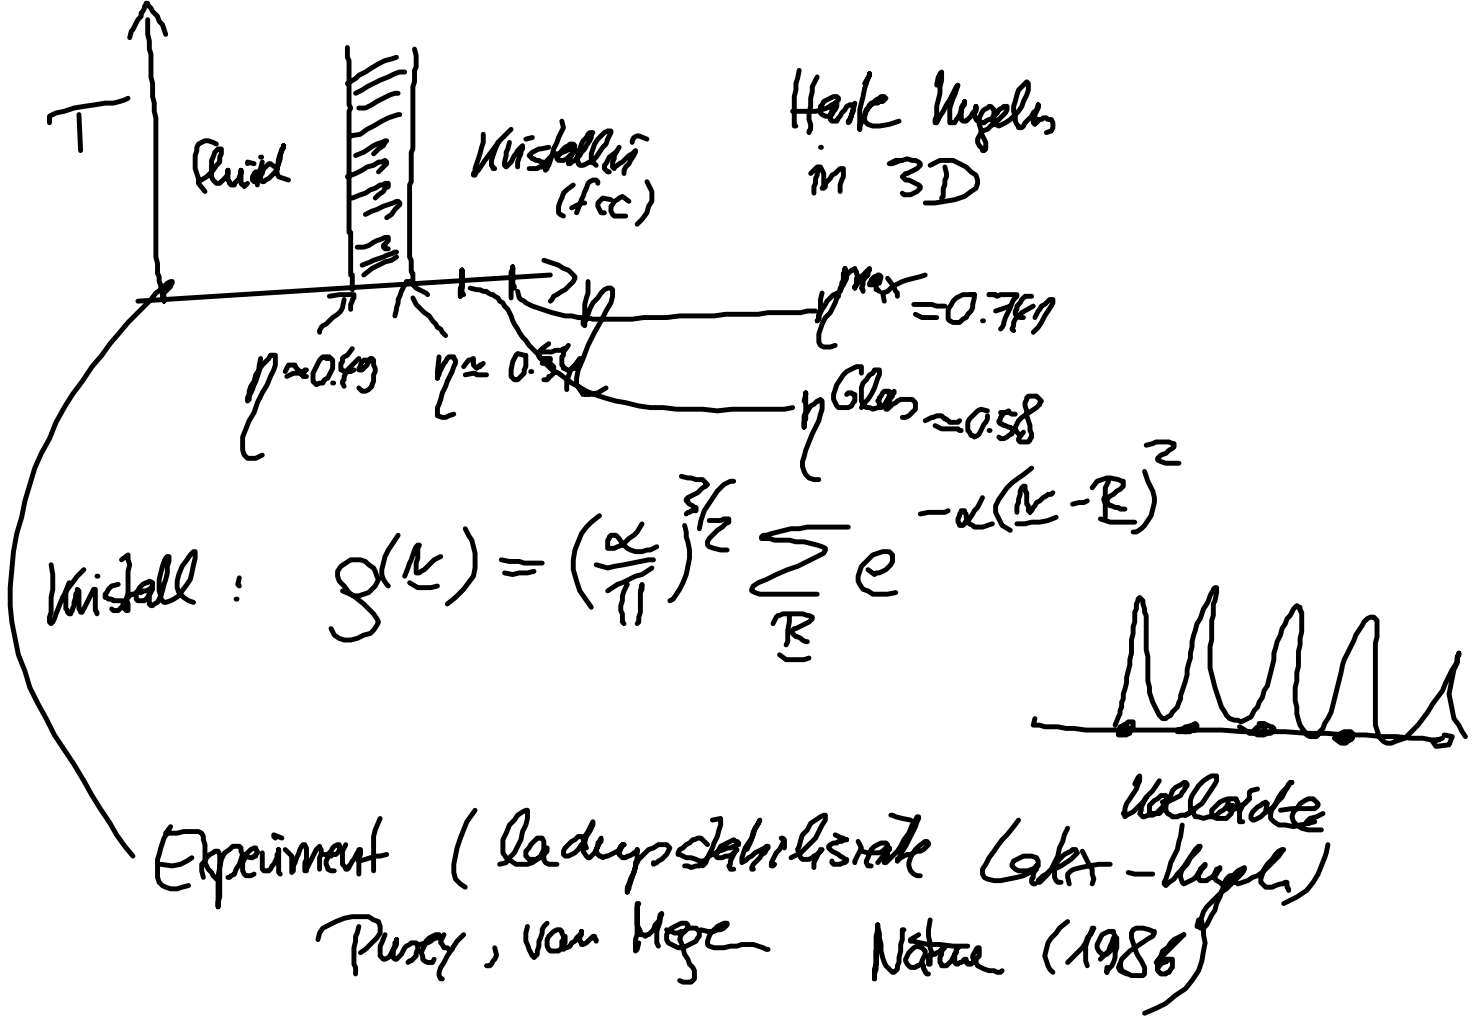 T
Fluid
Kristallin
(fcc)
Harte Kugeln
in 3D
η
η^Max = 0.74
η ≈ 0.49
η ≈ 0.54
η^Glas ≈ 0.58
Kristall : ρ(r) = (α/π)^3/2 Σ_R e^-α(r - R)^2
Kolloide
Experiment ( ladungsstabilisierte Latex - Kugeln)
Pusey, van Megen Nature (1986)